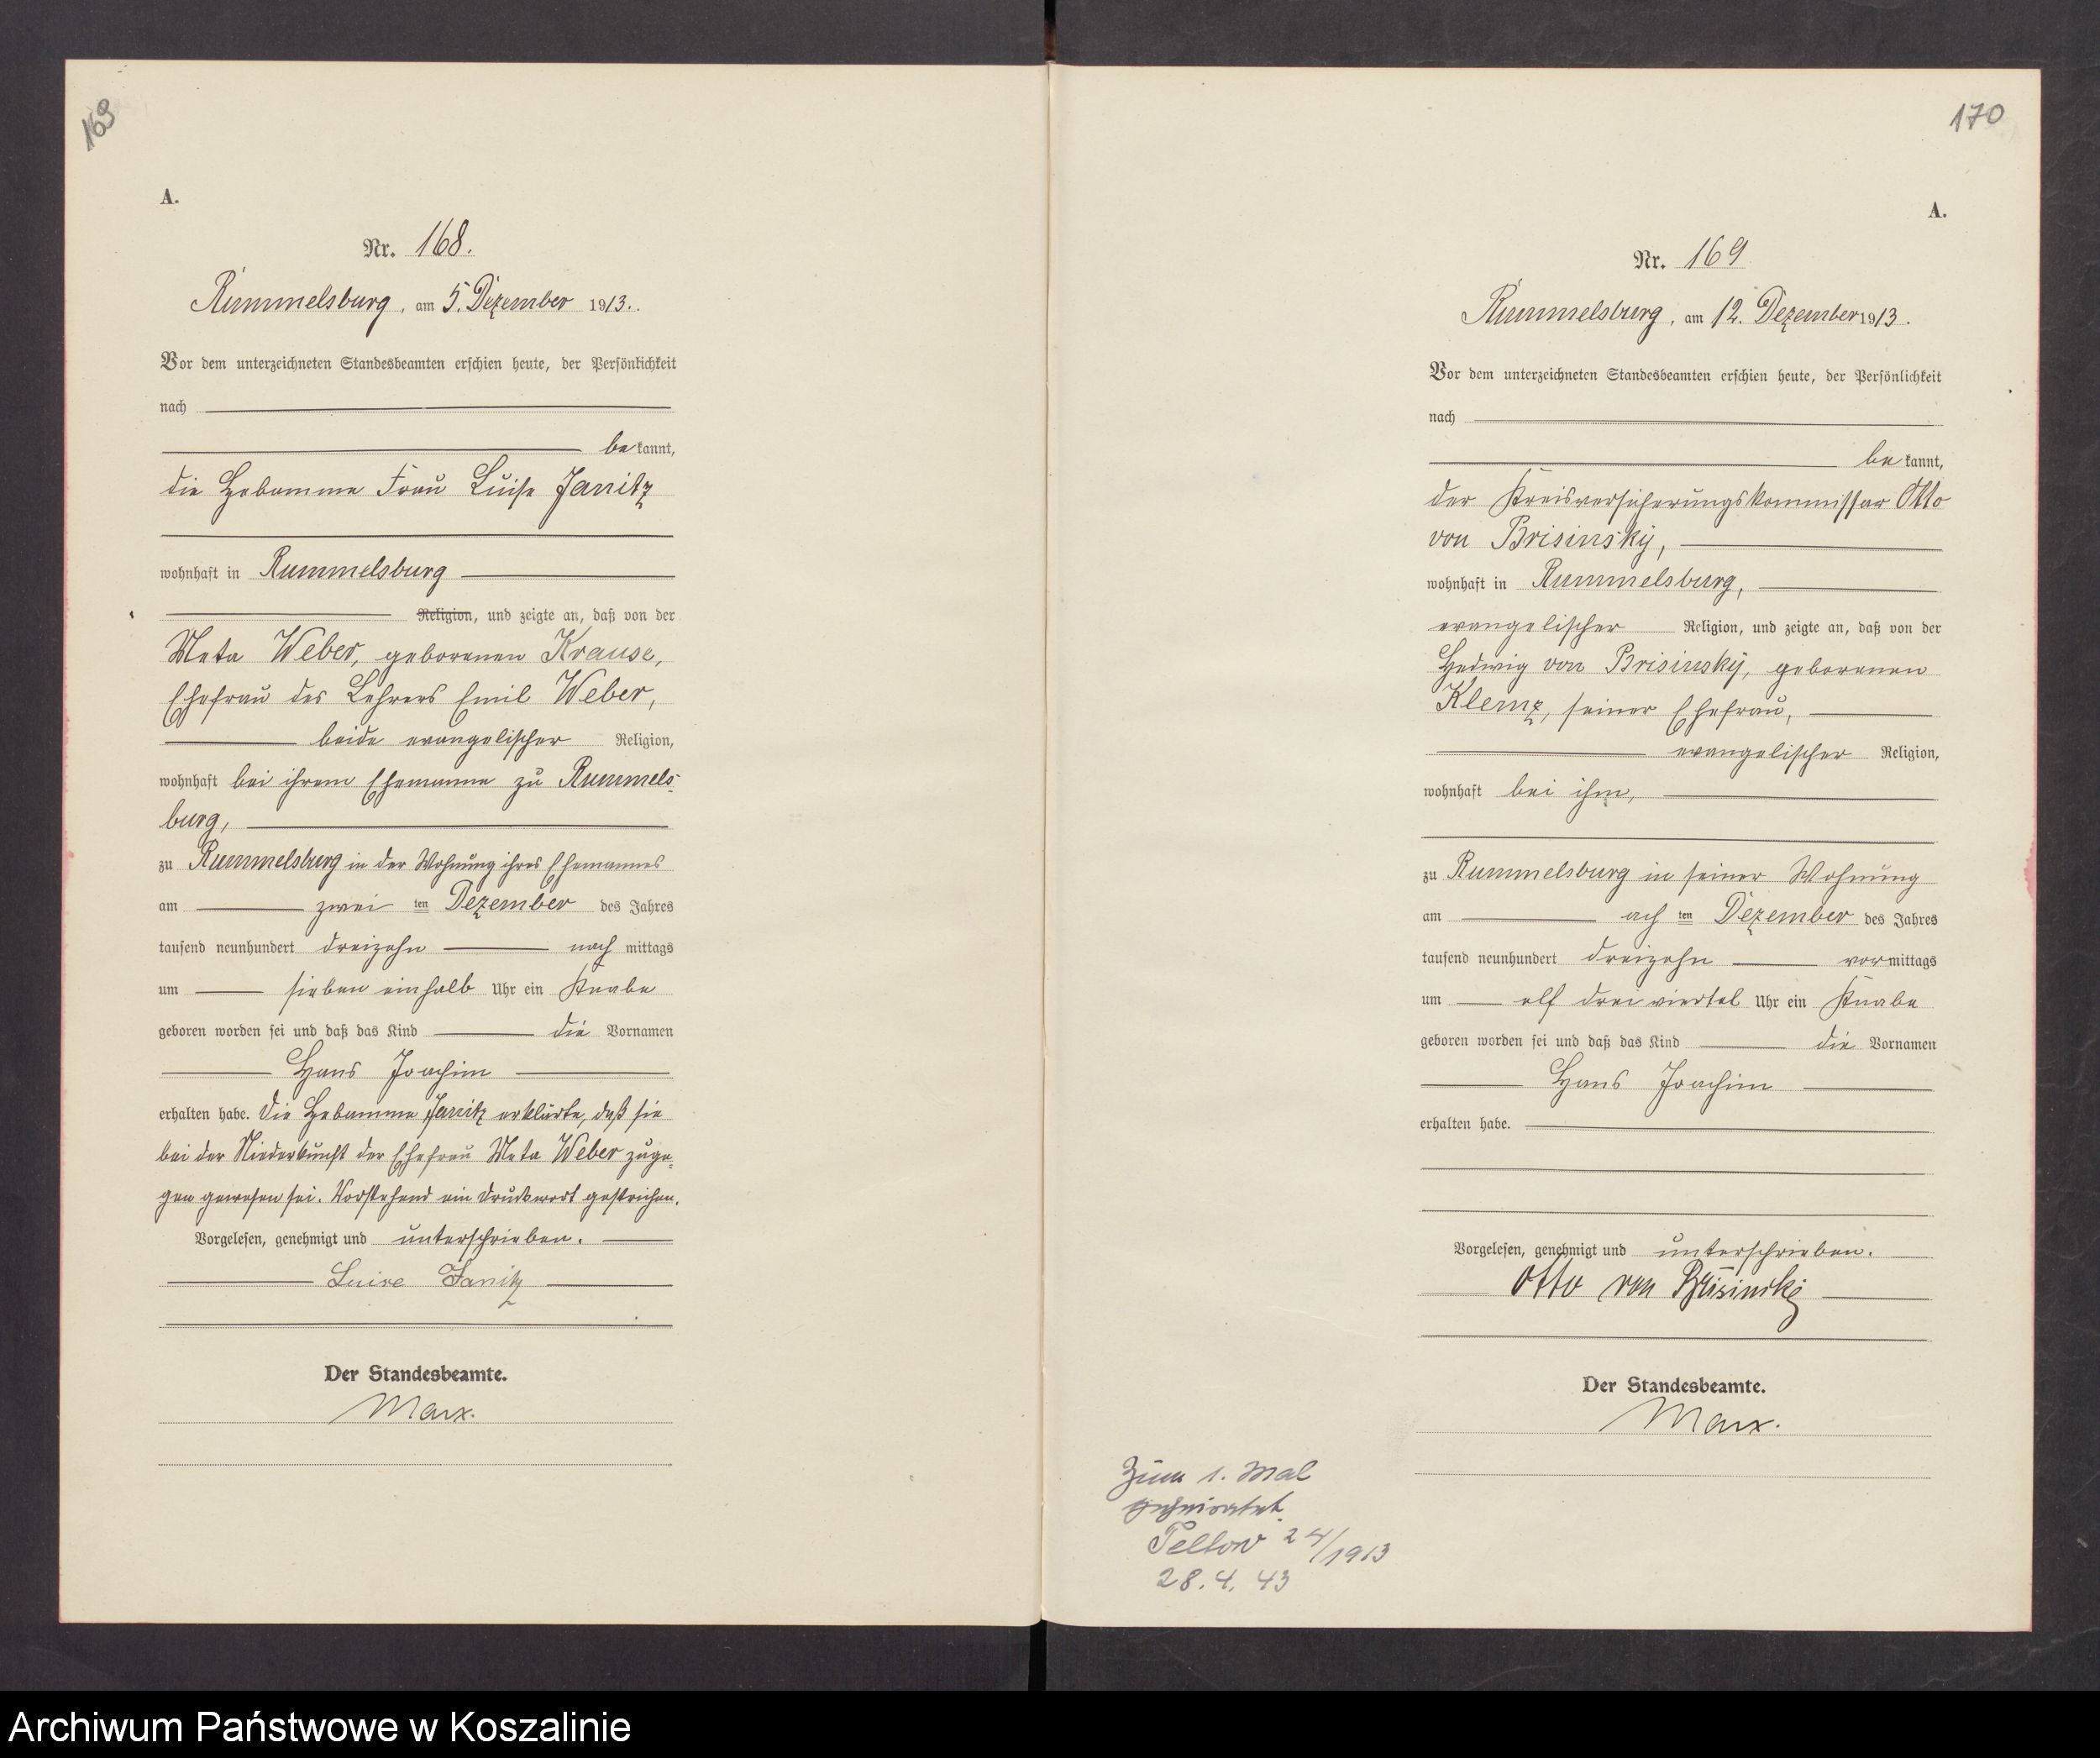 169
A.
Nr. 168.
Rummelsburg, am 5. Dezember 1913.
Vor dem unterzeichneten Standesbeamten erschien heute, der Persönlichkeit
nach
bekannt,
die Hebamme Frau Luise Janitz
wohnhaft in Rummelsburg
Religion, und zeigte an, daß von der
Meta Weber, geborenen Krause,
Ehefrau des Lehrers Emil Weber,
beide evangelischer Religion,
wohnhaft bei ihrem Ehemanne zu Rummels-
burg,
zu Rummelsburg in der Wohnung ihres Ehemannes
am zweiten Dezember des Jahres
tausend neunhundert dreizehn nachmittags
um sieben einhalb Uhr ein Knabe
geboren worden sei und daß das Kind die Vornamen
Hans Joachim
erhalten habe. Die Hebamme Janitz erklärte, daß sie
bei der Niederkunft der Ehefrau Meta Weber zuge-
gen gewesen sei. Vorstehend ein Druckwort gestrichen.
Vorgelesen, genehmigt und unterschrieben.
Luise Janitz
Der Standesbeamte.
Marx.
170
A.
Nr. 169
Rummelsburg, am 12. Dezember 1913.
Vor dem unterzeichneten Standesbeamten erschien heute, der Persönlichkeit
nach
bekannt,
der Kreisversicherungskommissar Otto
von Brisinský,
wohnhaft in Rummelsburg,
evangelischer Religion, und zeigte an, daß von der
Hedwig von Brisinský, geborenen
Klemz, seiner Ehefrau,
evangelischer Religion,
wohnhaft bei ihm,
zu Rummelsburg in seiner Wohnung
am achten Dezember des Jahres
tausend neunhundert dreizehn vormittags
um elf dreiviertel Uhr ein Knabe
geboren worden sei und daß das Kind die Vornamen
Hans Joachim
erhalten habe.
Vorgelesen, genehmigt und unterschrieben.
Otto von Brisinski
Der Standesbeamte.
Marx.
Zum 1. Mal
Teltow 24/1913
28.4.43
Archiwum Państwowe w Koszalinie